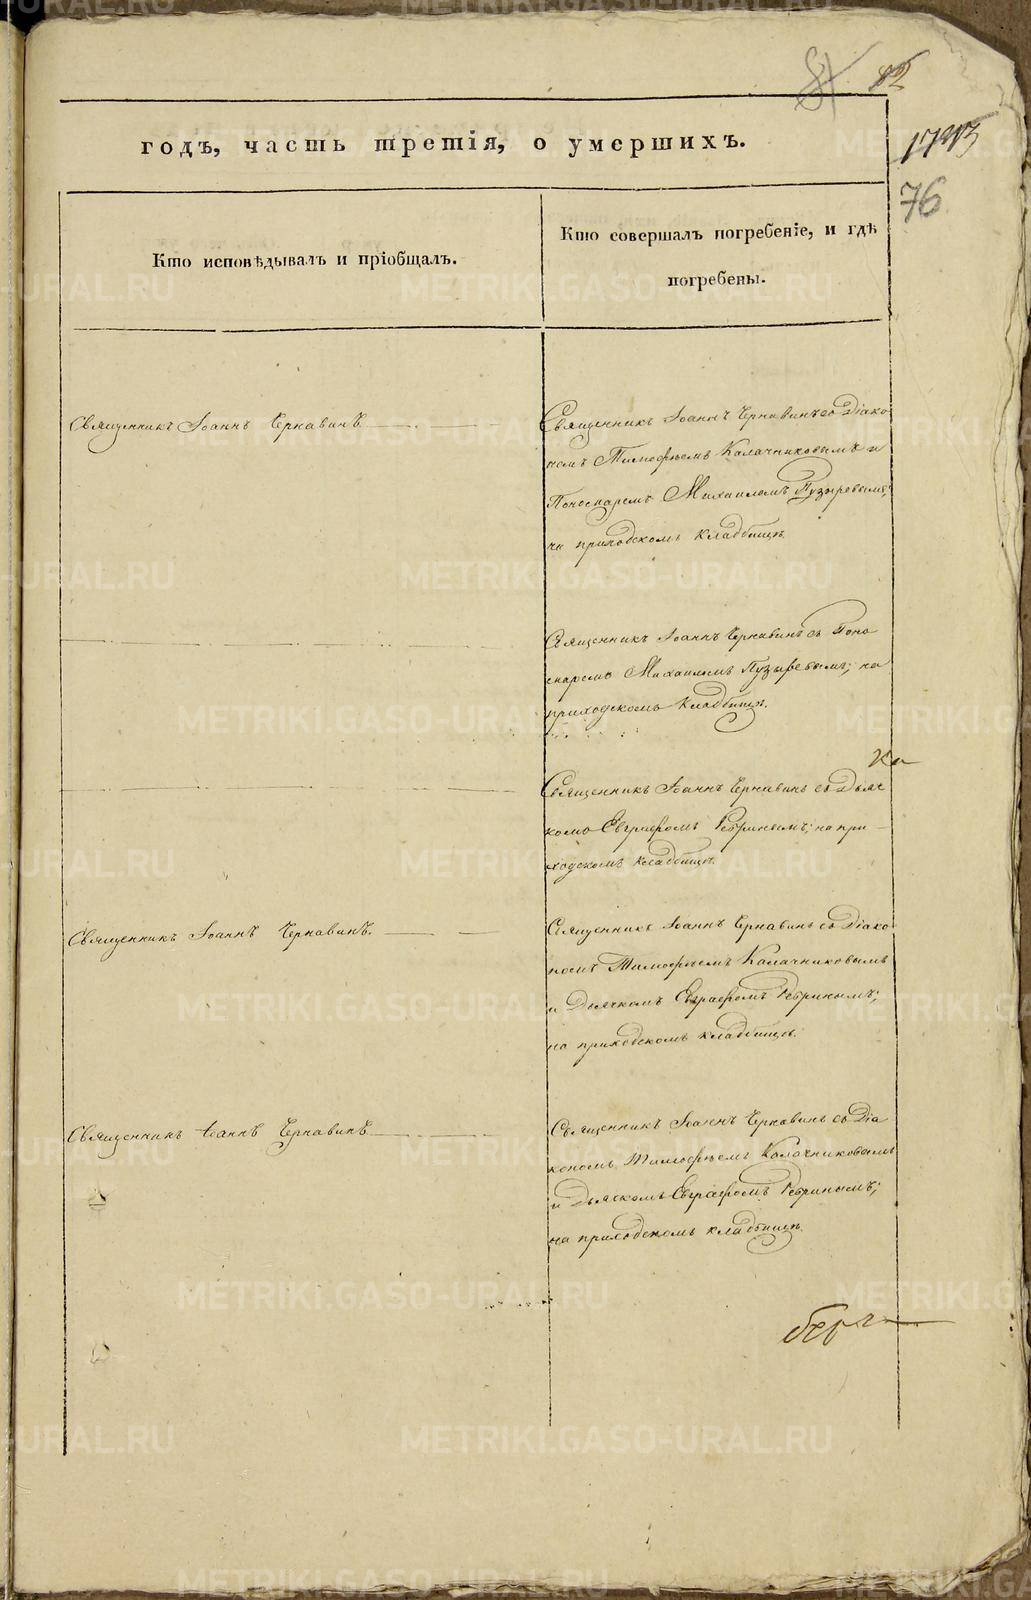 82
годъ, часть третія, о умершихъ.
76
Кто исповѣдывалъ и пріобщалъ.
Кто совершалъ погребеніе, и гдѣ
погребены.
Священникъ Іоаннъ Чернавинъ
Священникъ Іоаннъ Чернавинъ со Діако
номъ Тимофѣемъ Калачниковымъ и
Пономаремъ Михаиломъ Пузыревымъ;
на приходскомъ кладбищѣ.
Священникъ Іоаннъ Чернавинъ съ Поно
маремъ Михаиломъ Пузыревымъ; на
приходскомъ кладбищѣ.
Священникъ Іоаннъ Чернавинъ съ Дьяч
комъ Евграфомъ Ребринымъ; на при
ходскомъ кладбищѣ.
Священникъ Іоаннъ Чернавинъ.
Священникъ Іоаннъ Чернавинъ съ Діако
номъ Тимофѣемъ Калачниковымъ
и Дьячкомъ Евграфомъ Ребринымъ;
на приходскомъ кладбищѣ.
Священникъ Іоаннъ Чернавинъ
Священникъ Іоаннъ Чернавинъ съ Діа
кономъ Тимофѣемъ Калачниковымъ
и Дьячкомъ Евграфомъ Ребринымъ;
на приходскомъ кладбищѣ.
METRIKI.GASO-URAL.RU